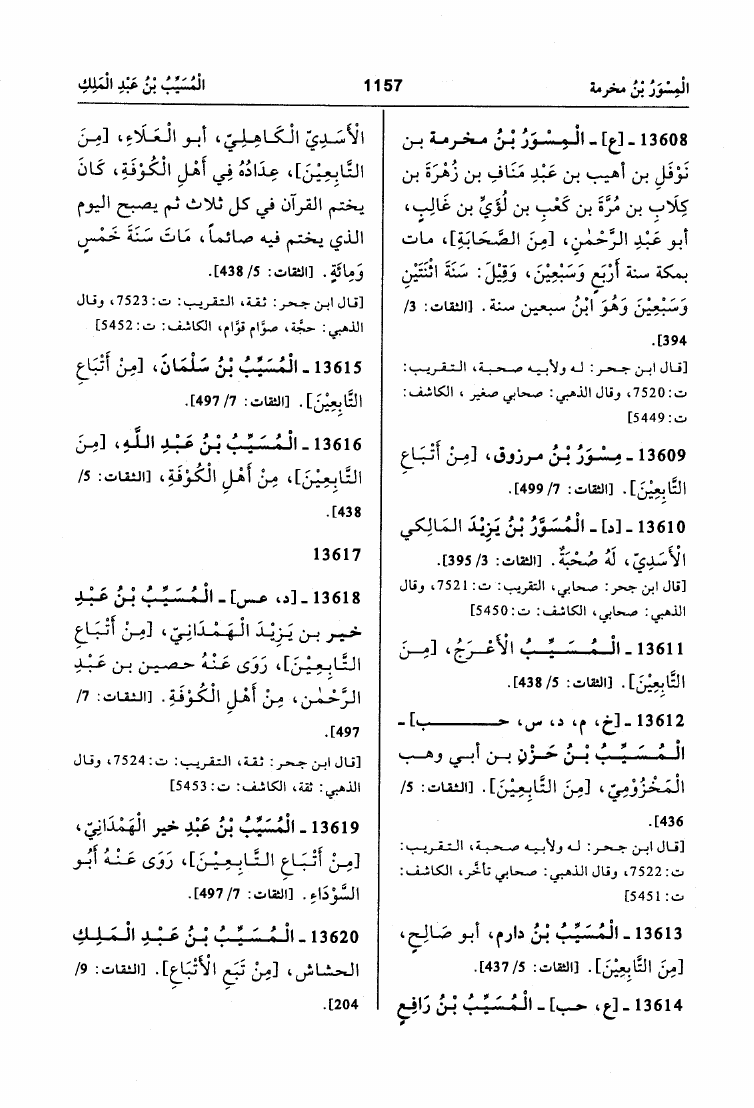 المِسْوَرُ بْنُ مخرمة
1157
المُسَيِّبُ بْنُ عَبْدِ المَلِكِ
13608 ـ [ع] ـ الْمِسْوَرُ بْنُ مخرمة بن
نَوْفَلِ بن أهيب بن عَبْدِ مَنَافِ بن زُهْرَةَ بن
كِلَابِ بن مُرَّةَ بن كَعْبِ بن لُؤَيِّ بن غَالِبٍ،
أبو عَبْدِ الرَّحْمٰنِ، [مِنَ الصَّحَابَةِ]، مات
بمكة سنة أَرْبَعٍ وَسَبْعِينَ، وَقِيْلَ: سَنَةَ اثْنَتَيْنِ
وَسَبْعِينَ وَهُوَ ابْنُ سبعين سنة. [الثقات: 3/
394].
[قال ابن حجر: له ولأبيه صحبة، التقريب:
ت: 7520، وقال الذهبي: صحابي صغير، الكاشف:
ت: 5449]
13609 ـ مِسْوَرُ بْنُ مرزوق، [مِنْ أَتْبَاعِ
التَّابِعِيْنَ]. [الثقات: 7/ 499].
13610 ـ [د] ـ الْمُسَوَّرُ بْنُ يَزِيْدَ المَالِكي
الأَسَدِيّ، لَهُ صُحْبَةٌ. [الثقات: 3/ 395].
[قال ابن حجر: صحابي، التقريب: ت: 7521، وقال
الذهبي: صحابي، الكاشف: ت: 5450]
13611 ـ الْمُسَيِّبُ الأَعْرَجُ، [مِنَ
التَّابِعِيْنَ]. [الثقات: 5/ 438].
13612 ـ [خ، م، د، س، حب] ـ
الْمُسَيِّبُ بْنُ حَزْنِ بن أبي وهب
الْمَخْزُومِيّ، [مِنَ التَّابِعِيْنَ]. [الثقات: 5/
436].
[قال ابن حجر: له ولأبيه صحبة، التقريب:
ت: 7522، وقال الذهبي: صحابي تأخَّر، الكاشف:
ت: 5451]
13613 ـ الْمُسَيِّبُ بْنُ دارم، أبو صَالِحٍ،
[مِنَ التَّابِعِيْنَ]. [الثقات: 5/ 437].
13614 ـ [ع، حب] ـ الْمُسَيِّبُ بْنُ رَافِعٍ
الأَسَدِيّ الْكَاهِلِيّ، أبو الْعَلَاءِ، [مِنَ
التَّابِعِيْنَ]، عِدَادُهُ فِي أَهْلِ الْكُوْفَةِ، كَانَ
يختم القرآن في كل ثلاث ثم يصبح اليوم
الذي يختم فيه صائماً، مَاتَ سَنَةَ خَمْسٍ
وَمِائَةٍ. [الثقات: 5/ 438].
[قال ابن حجر: ثقة، التقريب: ت: 7523، وقال
الذهبي: حجّة، صوَّام قوَّام، الكاشف: ت: 5452]
13615 ـ الْمُسَيِّبُ بْنُ سَلْمَانَ، [مِنْ أَتْبَاعِ
التَّابِعِيْنَ]. [الثقات: 7/ 497].
13616 ـ الْمُسَيِّبُ بْنُ عَبْدِ اللَّهِ، [مِنَ
التَّابِعِيْنَ]، مِنْ أَهْلِ الْكُوْفَةِ، [الثقات: 5/
438].
13617
13618 ـ [د، عس] ـ الْمُسَيِّبُ بْنُ عَبْدِ
خير بن يَزِيْدَ الْهَمْدَانِيّ، [مِنْ أَتْبَاعِ
التَّابِعِيْنَ]، رَوَى عَنْهُ حصين بن عَبْدِ
الرَّحْمٰنِ، مِنْ أَهْلِ الْكُوْفَةِ. [الثقات: 7/
497].
[قال ابن حجر: ثقة، التقريب: ت: 7524، وقال
الذهبي: ثقة، الكاشف: ت: 5453]
13619 ـ الْمُسَيِّبُ بْنُ عَبْدِ خير الْهَمْدَانِيّ،
[مِنْ أَتْبَاعِ التَّابِعِيْنَ]، رَوَى عَنْهُ أَبُو
السَّوْدَاءِ. [الثقات: 7/ 497].
13620 ـ الْمُسَيِّبُ بْنُ عَبْدِ الْمَلِكِ
الحشاش، [مِنْ تَبَعِ الأَتْبَاعِ]. [الثقات: 9/
204].